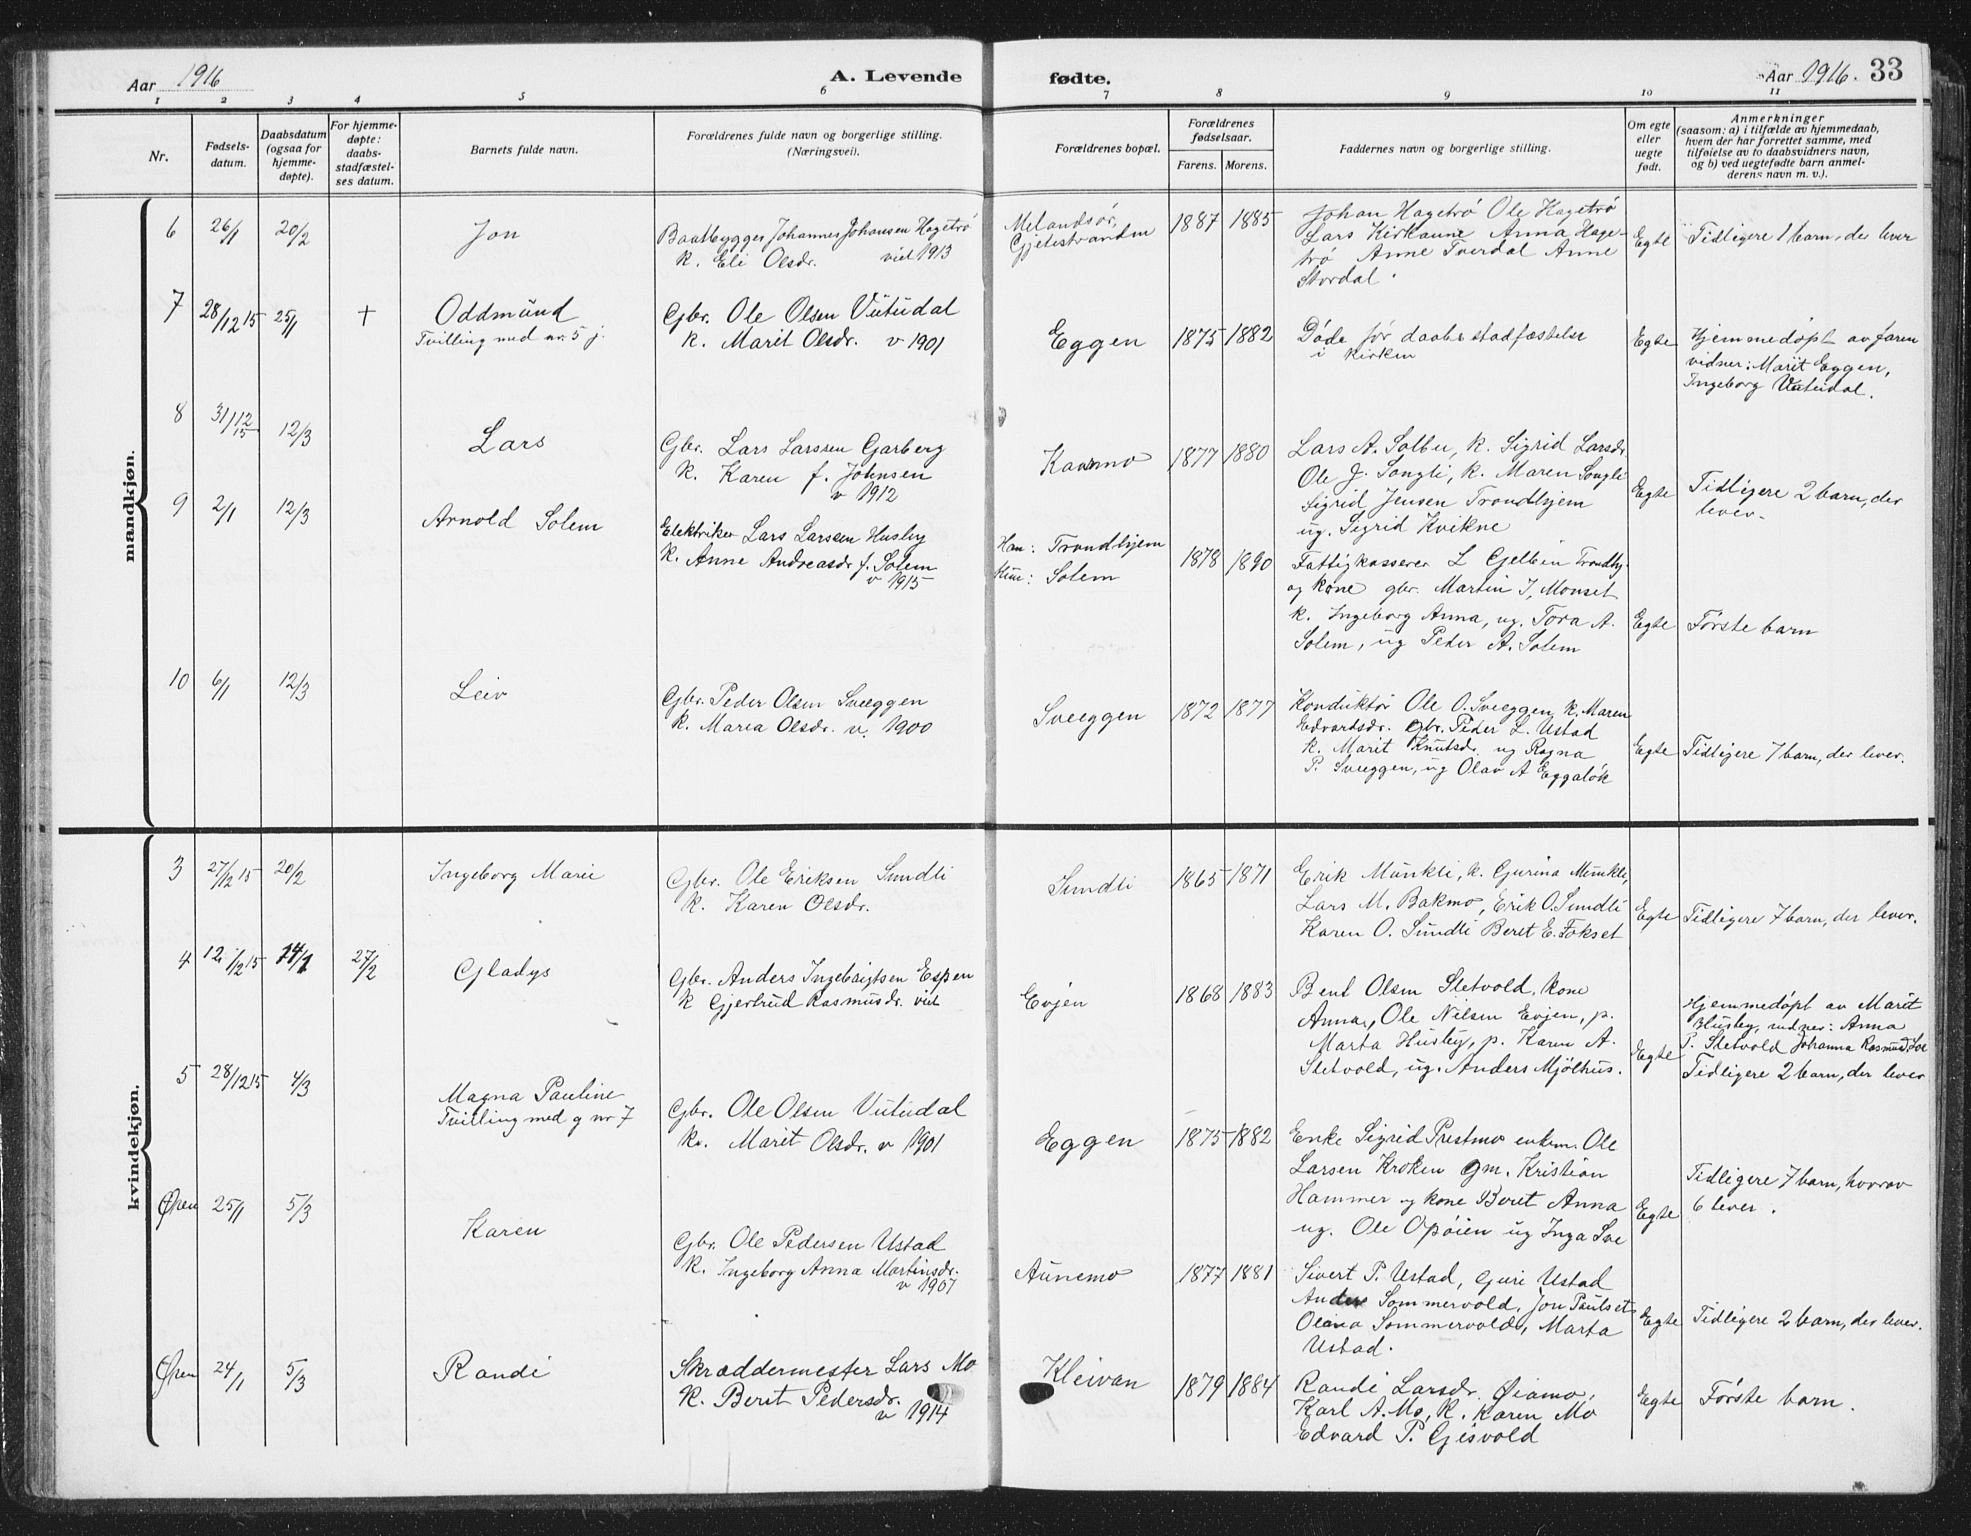 Aar 1916
A. Levende
fødte.
Aar 1916. 33
1 2 3 4 5 6 7 8 9 10 11
Nr.
Fødsels-
datum.
Daabsdatum
(ogsaa for
hjemme-
døpte).
For hjemme-
døpte:
daabs-
stadfæstel-
ses datum.
Barnets fulde navn.
Forældrenes fulde navn og borgerlige stilling.
(Næringsvei).
Forældrenes bopæl.
Forældrenes
fødselsaar.
Farens. Morens.
Faddernes navn og borgerlige stilling.
Om egte
eller
uegte
født.
Anmerkninger
(saasom: a) i tilfælde av hjemmedaab,
hvem der har forrettet samme, med
tilføielse av to daabsvidners navn,
og b) ved uegtefødte barn anmel-
derens navn m. v.).
mandkjøn.
6 26/1 20/2
Jon
Baatbygger Johannes Johansen Hagetrø
k. Eli Olsdr. viet 1913
Melandsør,
Gjetestranden
1887 1885
Johan Hagetrø Ole Hagetrø
Lars Kirkaune Anna Hage-
trø Anne Tverdal Anne
Stordal.
Egte
Tidligere 1 barn, der lever
7 28/12 15 25/1 +
Oddmund
Tvilling med nr. 5 j.
Gbr. Ole Olsen Vutudal
k. Marit Olsdr. v 1901
Eggen
1875 1882
Døde før daabsstadfæstelse
i kirken
Egte
Hjemmedøpt av faren
vidner: Marit Eggen,
Ingeborg Vutudal.
8 31/12 15 12/3
Lars
Gbr. Lars Larssen Garberg
k. Karen f. Johnsen
v 1912
Kavmo
1877 1880
Lars A. Solbu, k. Sigrid Larsdr
Ole J. Songli, k. Maren Songli
Sigrid Jensen Trondhjem
ug. Sigrid Kvikne
Egte
Tidligere 2 barn, der
lever.
9 2/1 12/3
Arnold Solem
Elektriker Lars Larssen Husby
k. Anne Andreasdr f. Solem
v 1915
Han: Trondhjem
Kun: Solem
1878 1890
Fattigkasserer L Gjelbin Trondhj.
og kone gbr. Martin J. Monset
k. Ingeborg Anna, ug. Tora A.
Solem, ug Peder A. Solem
Egte
Første barn
10 6/1 12/3
Leiv
Gbr. Peder Olsen Sveeggen
k. Maria Olsdr. v. 1900
Sveeggen
1872 1877
Konduktør Ole O. Sveeggen, k. Maren
Edvartsdr. gbr. Peder L. Ustad
k. Marit Knutsdr. ug Ragna
P. Sveeggen, ug Olav A Eggaløk
Egte
Tidligere 7 barn, der lever.
kvindekjøn.
3 27/12 15 20/2
Ingeborg Marie
Gbr. Ole Eriksen Sundli
k. Karen Olsdr.
Sundli
1865 1871
Erik Munkli, k. Gurina Munkli,
Lars M. Bakmo, Erik O. Sundli
Karen O. Sundli Beret E. Fokset
Egte
Tidligere 7 barn, der lever.
4 12/12 15 14/1 27/2
Gladys
Gbr. Anders Ingebrigtsen Espen
k Gjertrud Rasmusdr. viet
Evjen
1868 1883
Bent Olsen Sletvold, kone
Anna, Ole Nilsen Evjen, p.
Marta Husby, p. Karen A.
Sletvold, ug. Anders Mjølhus.
Egte
Hjemmedøpt av Marit
Husby, vidner: Anna
P. Sletvold Johanna Rasmusd. Loe
Tidligere 2 barn, der lever
5 28/12 15 4/3
Magna Pauline
Tvilling med g nr 7
Gbr. Ole Olsen Vutudal
k. Marit Olsdr. v 1901
Eggen
1875 1882
Enke Sigrid Prestmo enkem. Ole
Larsen Kroken gm. Kristian
Hammer og kone Beret Anna
ug. Ole Opøien ug Inga Loe
Egte
Tidligere 7 barn, hvorav
6 lever.
Øren 25/1 5/3
Karen
Gbr. Ole Pedersen Ustad
k. Ingeborg Anna Martinsdr.
v 1907
Aunemo
1877 1881
Sivert P. Ustad, Guri Ustad
Anders Sommervold, Jon Paulset
Olava Sommervold, Marta
Ustad.
Egte
Tidligere 2 barn, der lever.
Øren 24/1 5/3
Randi
Skræddermester Lars Mo
k. Berit Pedersdr.
v 1914
Kleivan
1879 1884
Randi Larsdr. Øiamo,
Karl A. Mo, k. Karen Mo
Edvard P. Gisvold
Egte
Første barn.